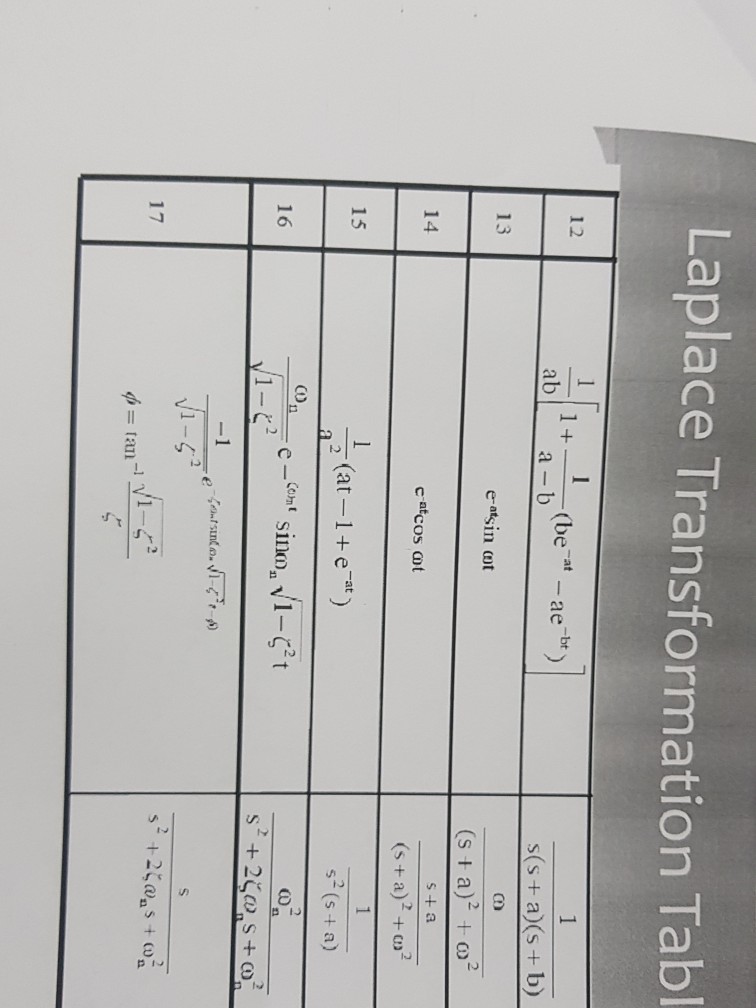 Laplace Transformation Tabl
12 1/ab [1 + 1/(a − b) (be^−at − ae^−bt)] 1/(s(s + a)(s + b))
13 e^-at sin ωt ω/((s + a)² + ω²)
14 e^-at cos ωt (s + a)/((s + a)² + ω²)
15 1/a² (at − 1 + e^−at) 1/(s²(s + a))
16 ωn/√(1 − ζ²) e^−ζωnt sinωn √(1 − ζ²) t ωn²/(s² + 2ζωns + ωn²)
17 −1/√(1 − ζ²) e^−ζωnt sin(ωn √(1 − ζ²) t − φ) s/(s² + 2ζωns + ωn²)
φ = tan⁻¹ √(1 − ζ²)/ζ